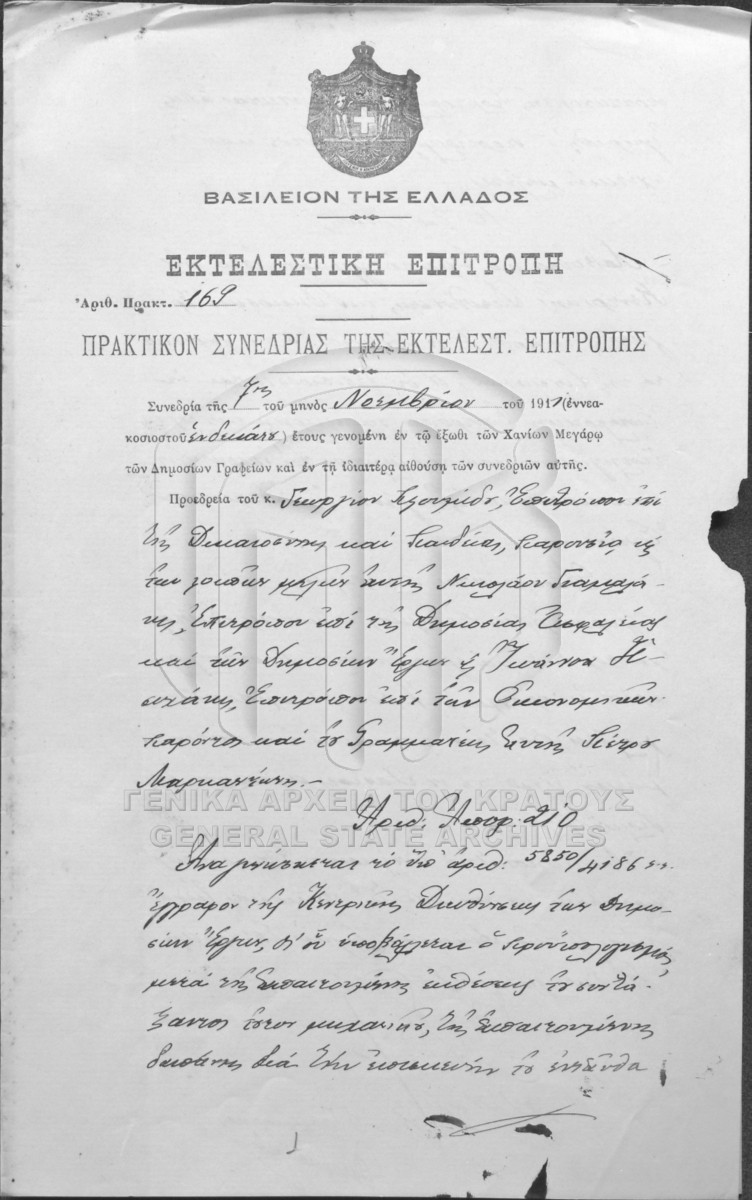 ΒΑΣΙΛΕΙΟΝ ΤΗΣ ΕΛΛΑΔΟΣ
ΕΚΤΕΛΕΣΤΙΚΗ ΕΠΙΤΡΟΠΗ
Ἀριθ. Πρακτ. 169
ΠΡΑΚΤΙΚΟΝ ΣΥΝΕΔΡΙΑΣ ΤΗΣ ΕΚΤΕΛΕΣΤ. ΕΠΙΤΡΟΠΗΣ
Συνεδρία τῆς 7ης τοῦ μηνὸς Νοεμβρίου τοῦ 1911 (ἐννεα-
κοσιοστοῦ ἑνδεκάτου) ἔτους γενομένη ἐν τῷ ἔξωθι τῶν Χανίων Μεγάρῳ
τῶν Δημοσίων Γραφείων καὶ ἐν τῇ ἰδιαιτέρᾳ αἰθούσῃ τῶν συνεδριῶν αὐτῆς.
Προεδρεία τοῦ κ. Γεωργίου Ἐπιτρόπου ἐπὶ
τῆς Δικαιοσύνης καὶ Παιδείας, παρουσίᾳ
τῶν λοιπῶν μελῶν αὐτῆς Νικολάου Γιαμαλά-
κη, Ἐπιτρόπου ἐπὶ τῆς Δημοσίας Ἀσφαλείας
καὶ τῶν Δημοσίων Ἔργων Ἰωάννου
Ἐπιτρόπου ἐπὶ τῶν Οικονομικῶν
παρόντος καὶ τοῦ Γραμματέως αὐτῆς Πέτρου
Μαρκαντώνη.-
ΓΕΝΙΚΑ ΑΡΧΕΙΑ ΤΟΥ ΚΡΑΤΟΥΣ
GENERAL STATE ARCHIVES
Ἀριθ. Ἀποφ. 210
Ἀναγινώσκεται τὸ ὑπ' ἀριθ. 5850/4186
ἔγγραφον τῆς Κεντρικῆς Διευθύνσεως τῶν Δημο-
σίων Ἔργων, δι' οὗ ὑποβάλλεται ὁ προϋπολογισμός,
μετὰ τῆς ἐκθέσεως τοῦ συντά-
ξαντος τοῦτον μηχανικοῦ, τῆς ἀπαιτουμένης
δαπάνης διὰ τὴν ἐπισκευὴν τοῦ ἐνταῦθα